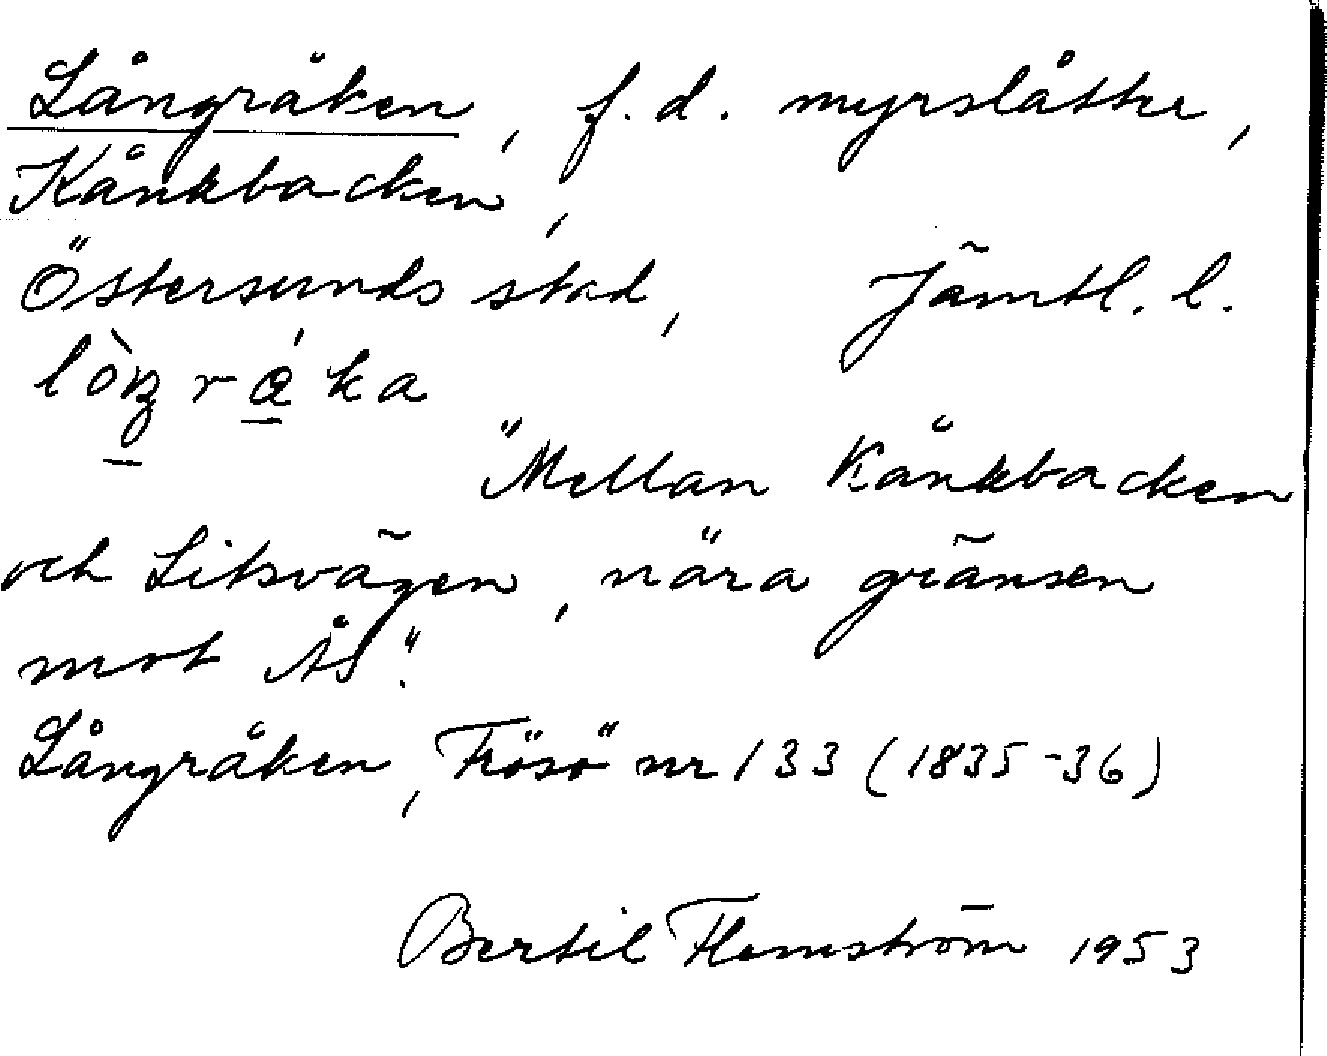 Långråken, f.d. myrslåtte,
Kånkbacken,
Östersunds stad, Jämtl. l.
lòŋrá̱ka
"Mellan Kånkbacken
och Litsvägen, nära gränsen
mot Ås".
Långråken, Frösö nr 133 (1835-36)
Bertil Flemström 1953